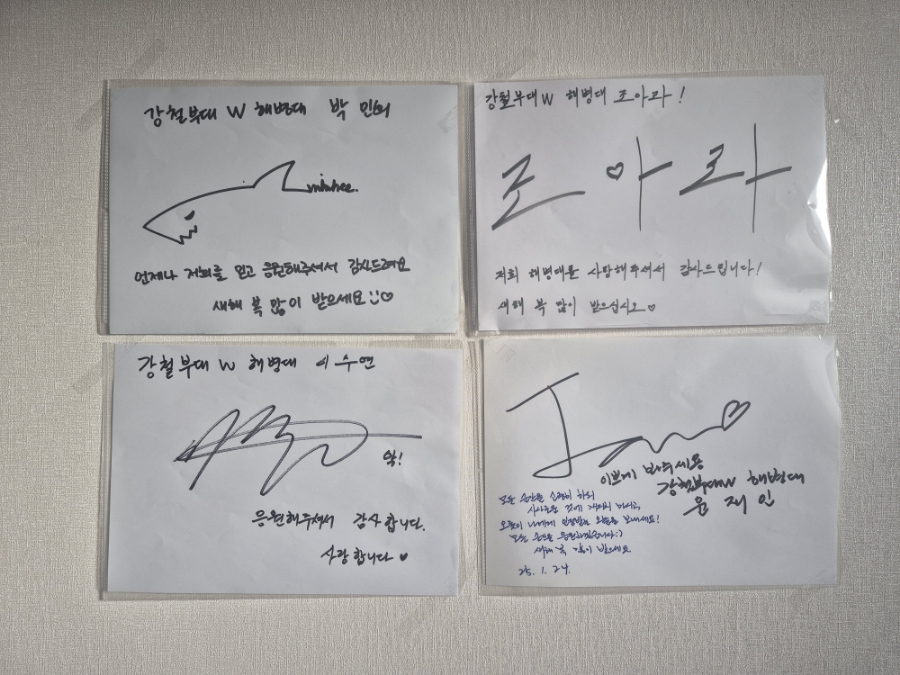 강철부대 W 해병대 박 민희
minhee.
언제나 저희를 믿고 응원해주셔서 감사드려요
새해 복 많이 받으세요 :)♡
강철부대W 해병대 조아라!
조♡아라
저희 해병대를 사랑해주셔서 감사드립니다!
새해 복 많이 받으십시오♡
강철부대 W 해병대 이수연
악!
응원해주셔서 감사합니다.
사랑합니다♥
이쁘게 봐주세용
강철부대W 해병대
윤재인
모든 순간을 소중히 하되
오늘을 보내세요!
모든 순간을 응원하겠습니다:)
새해 복 많이 받으세요
25. 1. 24.